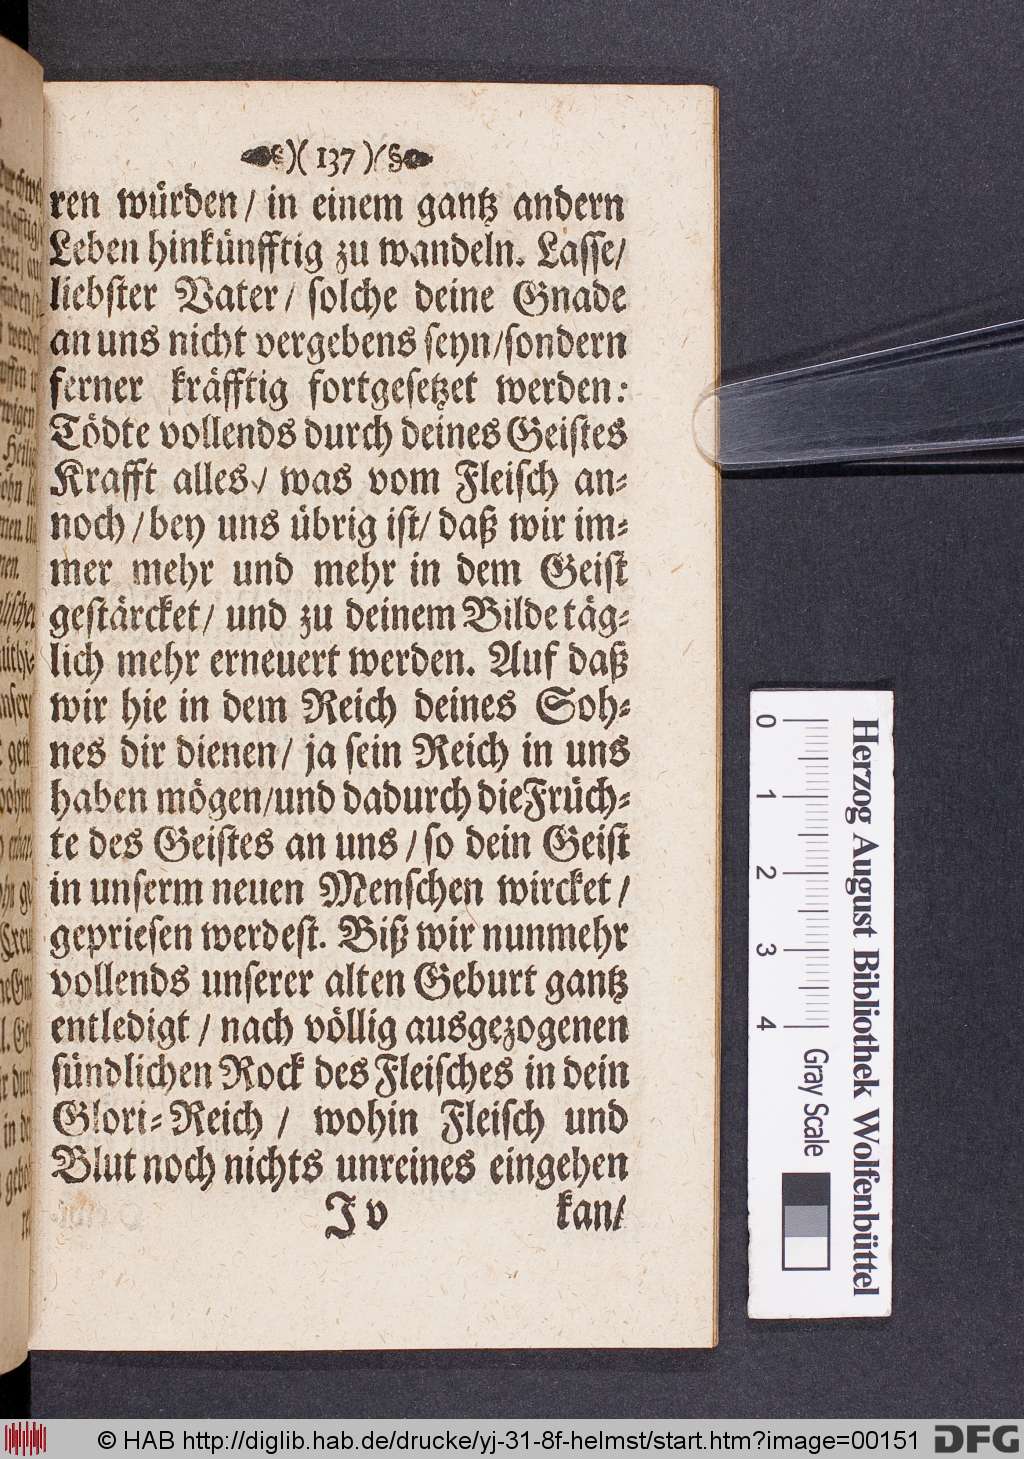 )( 137 )(
ren würden / in einem gantz andern
Leben hinkünfftig zu wandeln. Lasse /
liebster Vater / solche deine Gnade
an uns nicht vergebens seyn / sondern
ferner kräfftig fortgesetzet werden:
Tödte vollends durch deines Geistes
Krafft alles / was vom Fleisch an-
noch / bey uns übrig ist / daß wir im-
mer mehr und mehr in dem Geist
gestärcket / und zu deinem Bilde täg-
lich mehr erneuert werden. Auf daß
wir hie in dem Reich deines Soh-
nes dir dienen / ja sein Reich in uns
haben mögen / und dadurch die Früch-
te des Geistes an uns / so dein Geist
in unserm neuen Menschen wircket /
gepriesen werdest. Biß wir nunmehr
vollends unserer alten Geburt gantz
entledigt / nach völlig ausgezogenen
sündlichen Rock des Fleisches in dein
Glori-Reich / wohin Fleisch und
Blut noch nichts unreines eingehen
I v kan /
Herzog August Bibliothek Wolfenbüttel
0 1 2 3 4 Gray Scale
© HAB http://diglib.hab.de/drucke/yj-31-8f-helmst/start.htm?image=00151
DFG